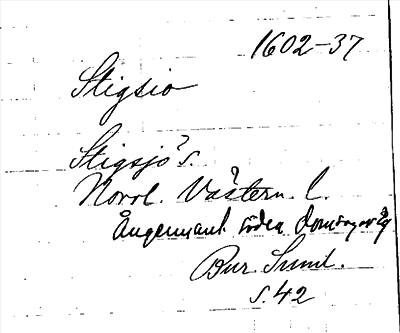 1602-37
Stigsio
Stigsjö s.
Norrl. Västern. l.
Ångermanl. södra
Bur. Suml.
s. 42